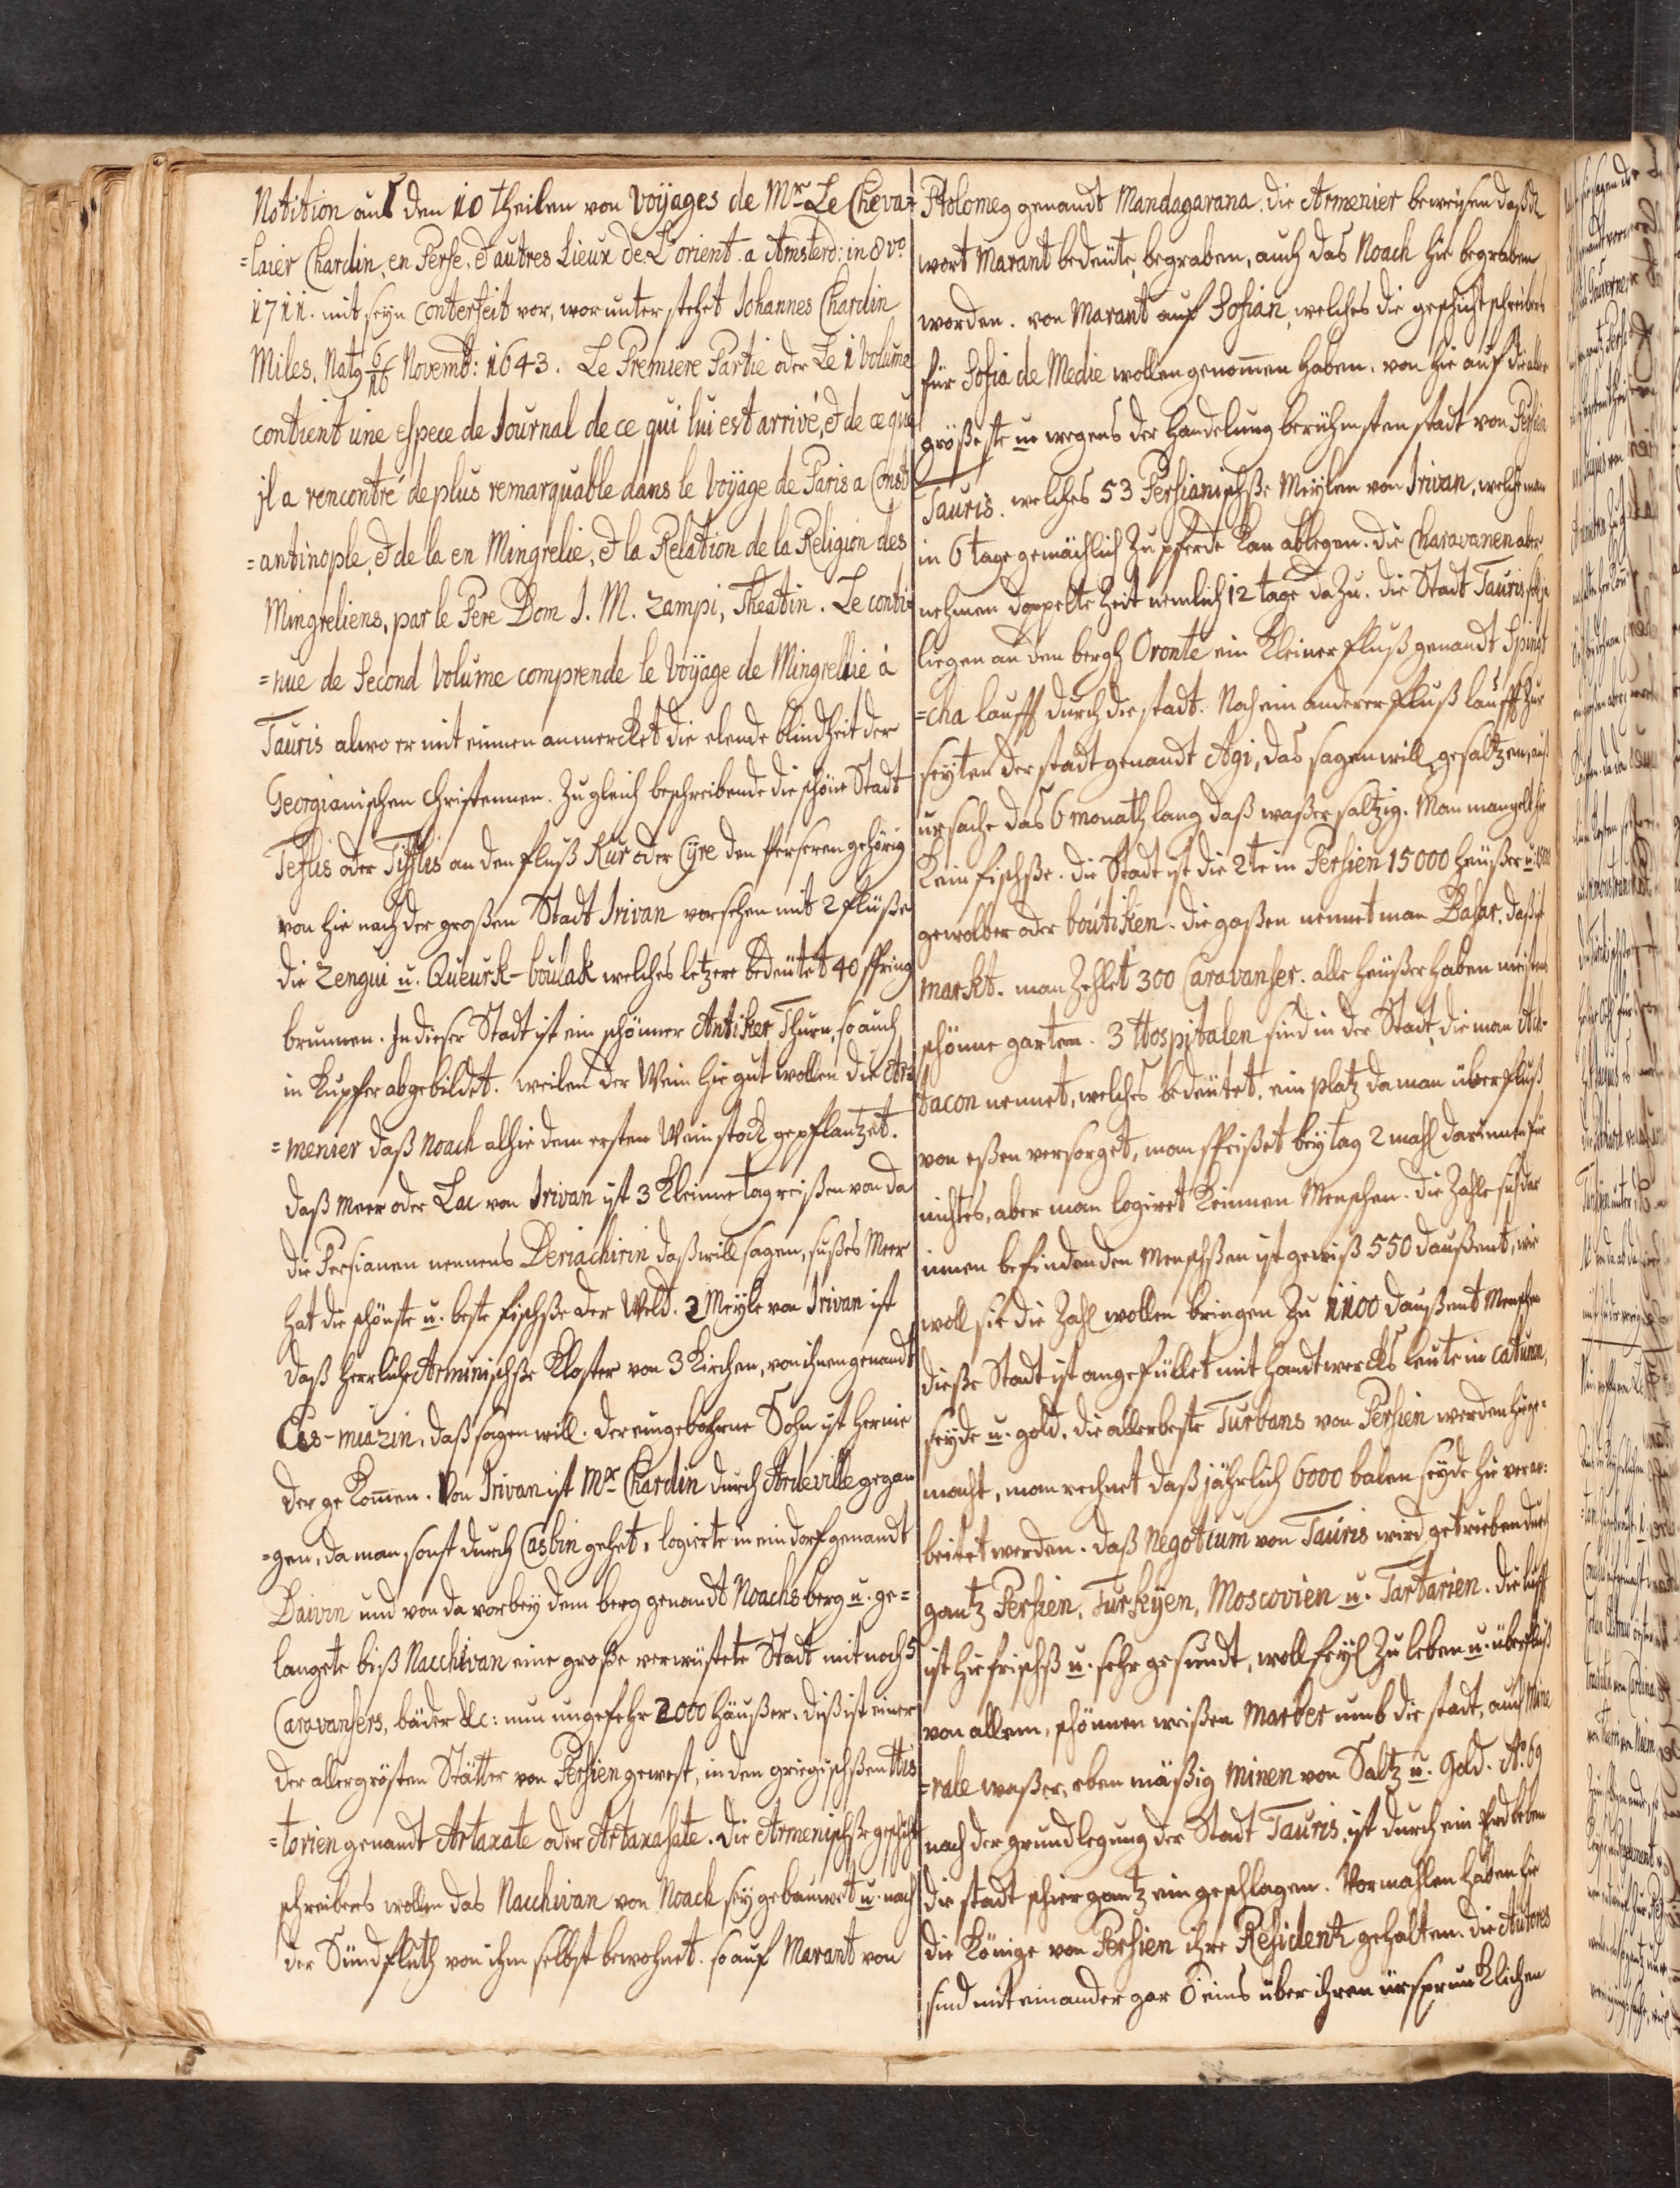 Notition auß den 10 theilen von Voÿages de Mr. Le Cheva=
=laier Chardin, en Perse, & autres Lieux de L'orient. a Amsterd: in 8vo.
1711. mit seÿn Conterfeit vor, worunter stehet Johannes Chardin
Miles, Nat9 6/16 Novemb: 1643. Le Premiere Partie oder Le 1 Volume
contient une espece de Journal de ce qui lui est arrivé, & de ce que
jl a rencontré de plus remarquable dans le Voÿage de Paris a Const
=antinople, & de la en Mingrelie, & la Relation de la Religion des
Mingreliens, par le Pere Dom J. M. Zampi, Theatin. Le conti=
=nue de Second Volume comprende le Voÿage de Mingrellie à
Tauris alwo er mit einnen anmercket die elende blindheit der
Georgianischen Christennen. Zu gleich beschreibende die schöne Stadt
Teflis oder Tifflis an den fluß Kur oder Cÿre den Perseren gehörig
von hie nach der großen Stadt Irivan vorsehen mit 2 flüße
die Zengui u. Queurk-boulak welches letzere bedeutet 40 spring
brunnen. In dieser Stadt ist ein schönner Antiker Thurn, so auch
in kupfer abgebildet. weilen der Wein hie gut wollen die Ar=
=menier daß Noach alhie dem ersten Weinstock gepflantzet.
daß Meer oder Lac von Irivan ist 3 kleinne tagreißen von da
die Persianen nennens Deriachirin daß will sagen, süßes Meer
hat die schönste u. beste fischße der Weld. 2 Meÿle von Irivan ist
daß herrliche Arminischße kloster von 3 kirchen, von ihnen genandt
Ecs-miazin, daß sagen will. der eingebohrne Sohn ist hernie
der gekommen. Von Irivan ist Mr. Chardin durch Ardeville gegan
=gen, da man sonst durch Casbin gehet, logierte in ein dorf genandt
Daivin und von da vorbeÿ dem berg genandt Noachs berg u. ge=
langete biß Nacchivan eine große verwüstete Stadt mit noch 5
Caravansers, bäder &c: nun ungefehr 2000 häußer. diß ist einer
der allergrösten Stätter von Persien gewest, in den griegischßen His
=torien genandt Artaxate oder Artaxasate. die Armenischße geschicht
schreibers wollen das Nacchivan von Noach seÿ gebauwet u. nach
der Sündfluth von ihm selbst bewohnet. so auf Marant von
Ptolomeg genandt Mandagarana. die Armenier beweisen daß dz
wort Marant bedeute, begraben, auch das Noach hie begraben
worden. von Marant auf Sofian, welches die geschichtschreibers
für Sofia de Medie wollen genommen haben. von hie auf die aller
größeste u. wegens der handelung berühmsten stadt von Persien
Tauris. welches 53 Persianischße Meÿlen von Irivan, welche man
in 6 tage gemächlich zu pferde kan ablegen. die Charavanen aber
nehmen doppelte zeit nemlich 12 tage dazu. die Stadt Tauris
liegen an den bergh Oronte ein kleiner fluß genandt Spingt
=cha laufft durch die stadt. Noch ein anderer fluß laufft zur
seÿten der stadt genandt Agi, das sagen will, gesaltzen, auß
ursache das 6 monath lang daß waßer saltzig. Man mangelt hie
kein fischße. die Stadt ist die 2te in Persien 15000 häußer u.
gewolber oder boutiken. die gaßen nennet man Basar, daß ist
markt. man zehlet 300 Caravanser. alle häußer haben meistens
schönne garten. 3 Hospitalen sind in der Stadt, die man Ach=
tacon nennet, welches bedeutet, ein platz da man überfluß
von eßen versorget, man speißet beÿ tag 2 mahl darinnen für
nichtes, aber man logieret keinnen Menschen. die zahle sich dar
innen befindenden Menschßen ist gewiß 550 daußent, wie
woll sie die zahl wollen bringen zu 1100 daußent Menschen
dieße Stadt ist angefüllet mit handtwercks leute in catunn,
seÿde u. gold. die allerbeste Turbans von Persien werden hie ge=
macht, man rechnet daß jährlich 6000 balen seÿde hie verar=
beitet werden. daß Negotium von Tauris wird getrieben durch
gantz Persien, Turkÿen, Moscovien u. Tartarien. die lufft
ist hie frischß u. sehr gesundt, woll feÿl zu leben u. überfluß
von allem, schönnen weißen Marber umb die stadt, auch Mine
=rale waßer, eben mäßig minen von Saltz u. Gold. Ao. 69
nach der grundlegung der Stadt Tauris, ist durch ein Erdbeben
die stadt schier gantz eingeschlagen. Vormahlen haben hie
die Könige von Persien ihre Residentz gehalten. die Autores
sind mit einander gar O eins über ihren ürsprunklichen